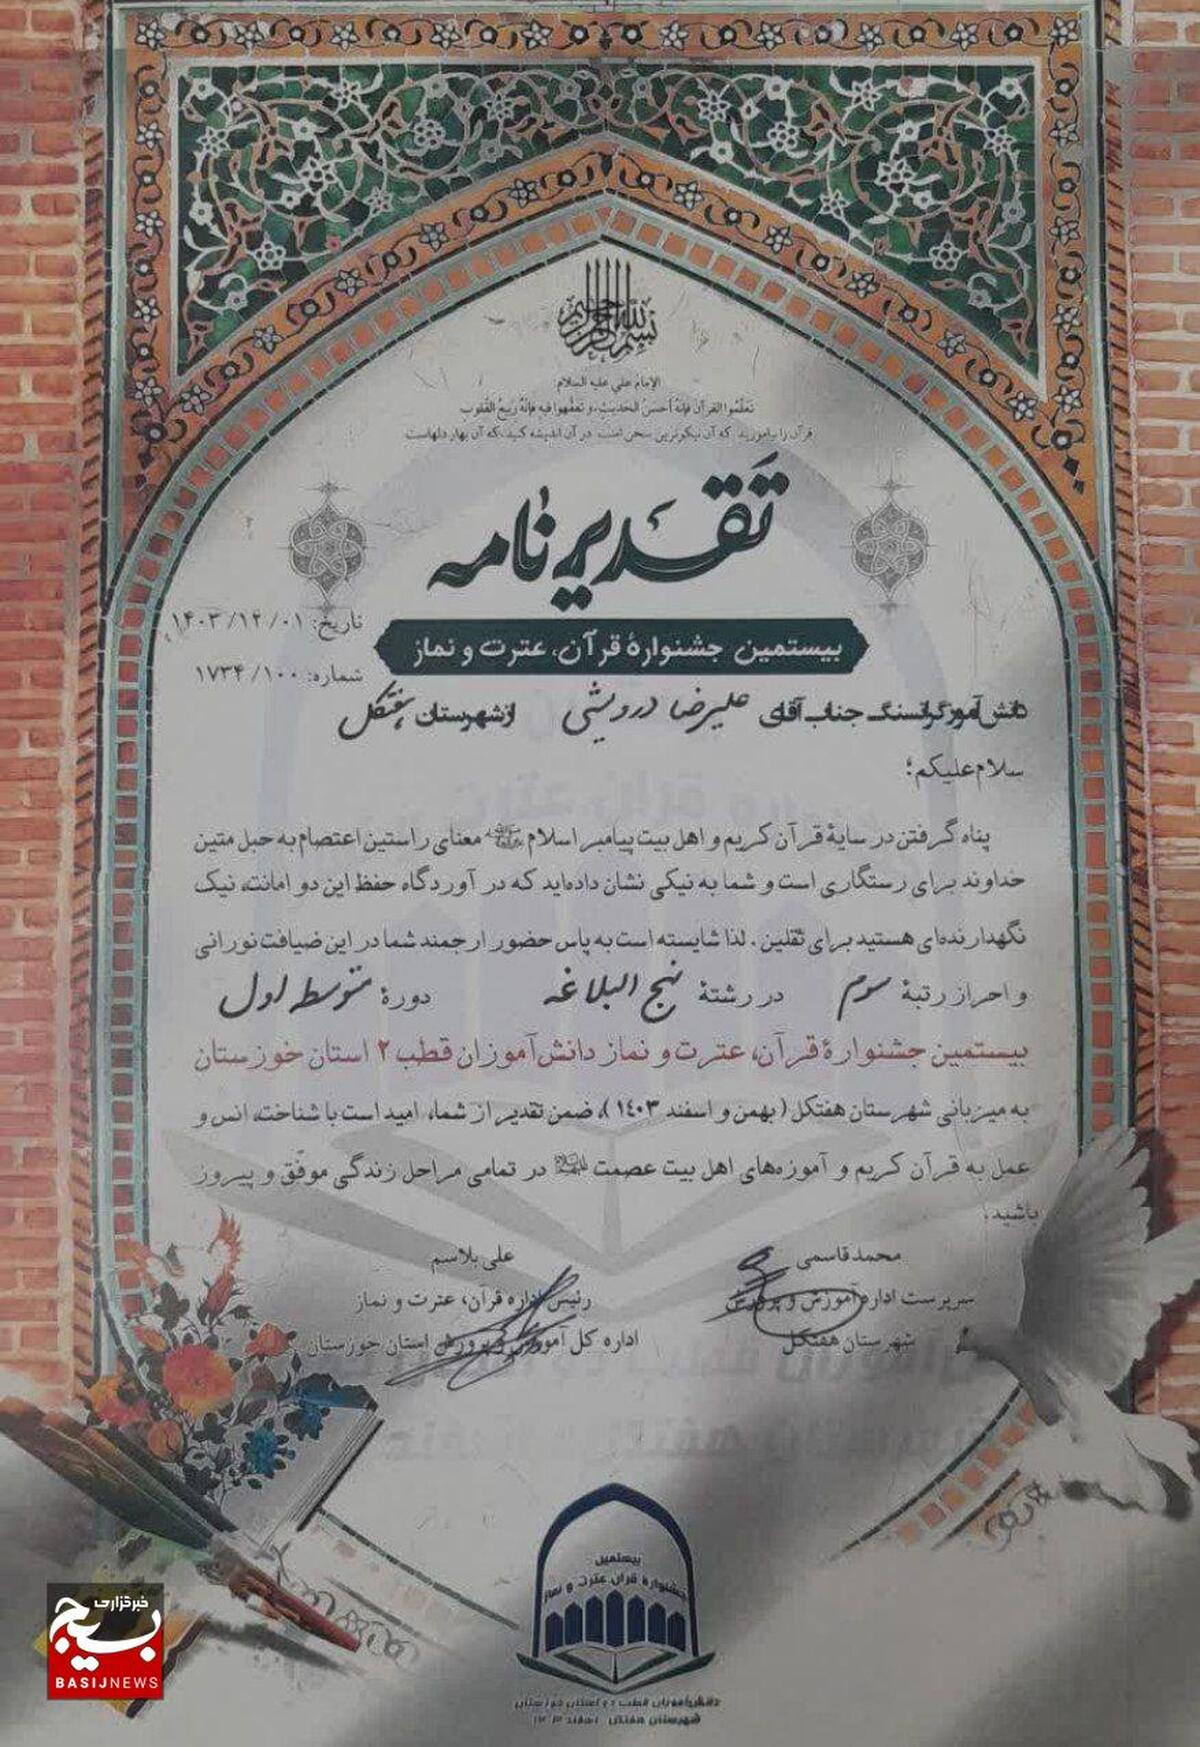 بسم الله الرحمن الرحیم
الإمام علي علیه السلام
تَعَلَّمُوا القرآن فَإنَّهُ أحسَنُ الحَدیث، و تَفَقَّهوا فیهِ فَإنَّهُ رَبیعُ القُلوب
قرآن را بیاموزید که آن نیکوترین سخن است در آن اندیشه کنید، که آن بهار دلهاست
تقدیرنامه
تاریخ: ۱۴۰۳/۱۲/۰۱
بیستمین جشنوارهٔ قرآن، عترت و نماز
شماره: ۱۷۳۴/۱۰۰
دانش‌آموز گرانسنگ جناب آقای علیرضا درویشی از شهرستان هفتکل
سلام علیکم؛
پناه گرفتن در سایهٔ قرآن کریم و اهل بیت پیامبر اسلام ﷺ معنای راستین اعتصام به حبل متین
خداوند برای رستگاری است و شما به نیکی نشان داده‌اید که در آوردگاه حفظ این دو امانت، نیک
نگهدارنده‌ای هستید برای ثقلین. لذا شایسته است به پاس حضور ارجمند شما در این ضیافت نورانی
و احراز رتبهٔ سوم در رشتهٔ نهج البلاغه دورهٔ متوسطه اول
بیستمین جشنوارهٔ قرآن، عترت و نماز دانش‌آموزان قطب ۲ استان خوزستان
به میزبانی شهرستان هفتکل (بهمن و اسفند ۱۴۰۳)، ضمن تقدیر از شما، امید است با شناخت، انس و
عمل به قرآن کریم و آموزه‌های اهل بیت عصمت در تمامی مراحل زندگی موفّق و پیروز
باشید.
محمد قاسمی
سرپرست اداره آموزش و پرورش
شهرستان هفتکل
علی بلاسم
رئیس اداره قرآن، عترت و نماز
اداره کل آموزش و پرورش استان خوزستان
بیستمین
جشنوارهٔ قرآن عترت و نماز
دانش‌آموزان قطب دو استان خوزستان
شهرستان هفتکل - اسفند ۱۴۰۳
خبرگزاری
بسیج
BASIJNEWS